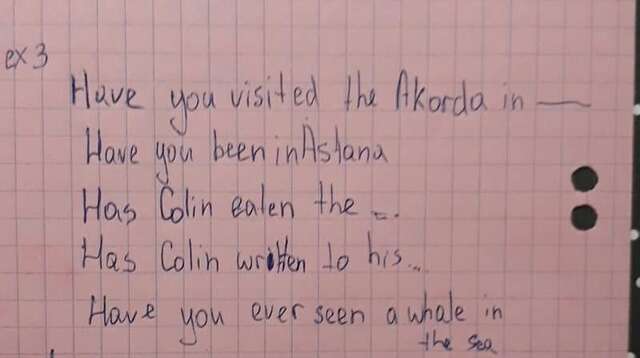 ex 3
Have you visited the Akorda in —
Have you been in Astana
Has Colin eaten the ...
Has Colin written to his...
Have you ever seen a whale in
the sea